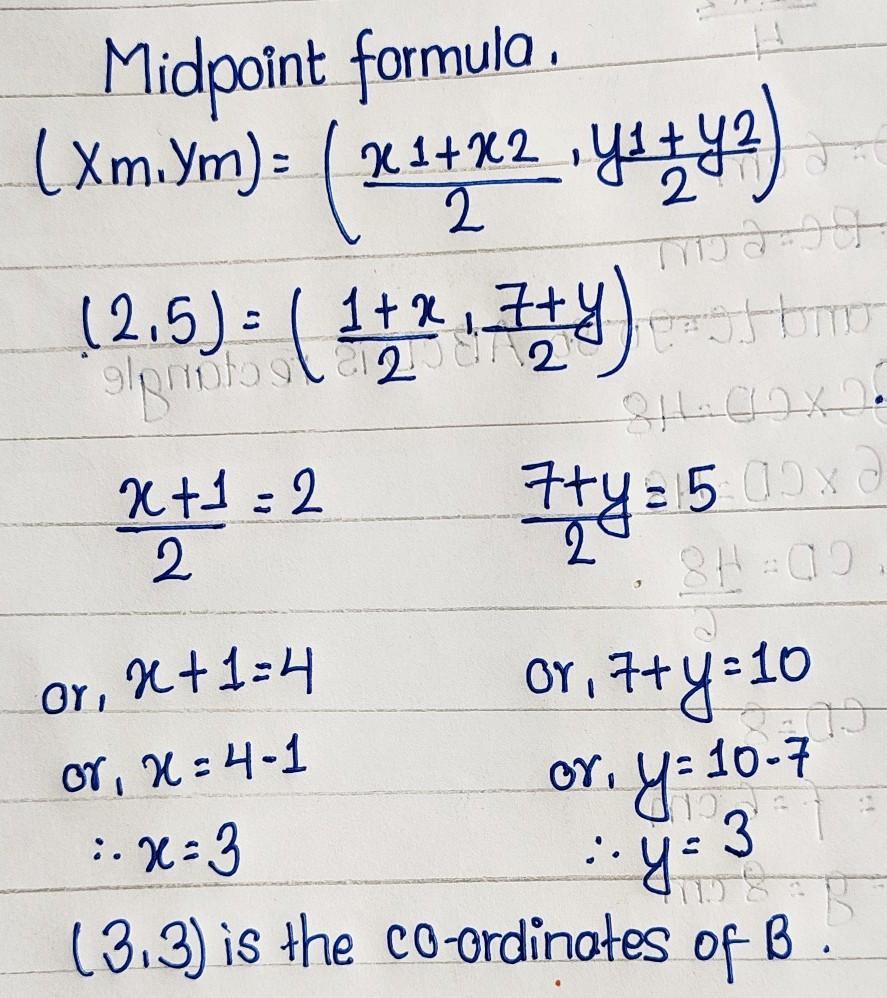 Midpoint formula.
(Xm, Ym) = (x1+x2/2, y1+y2/2)
(2,5) = (1+x/2, 7+y/2)
x+1/2 = 2    7+y/2 = 5
or, x+1=4    or, 7+y=10
or, x=4-1    or, y=10-7
∴ x=3    ∴ y=3
(3,3) is the co-ordinates of B.